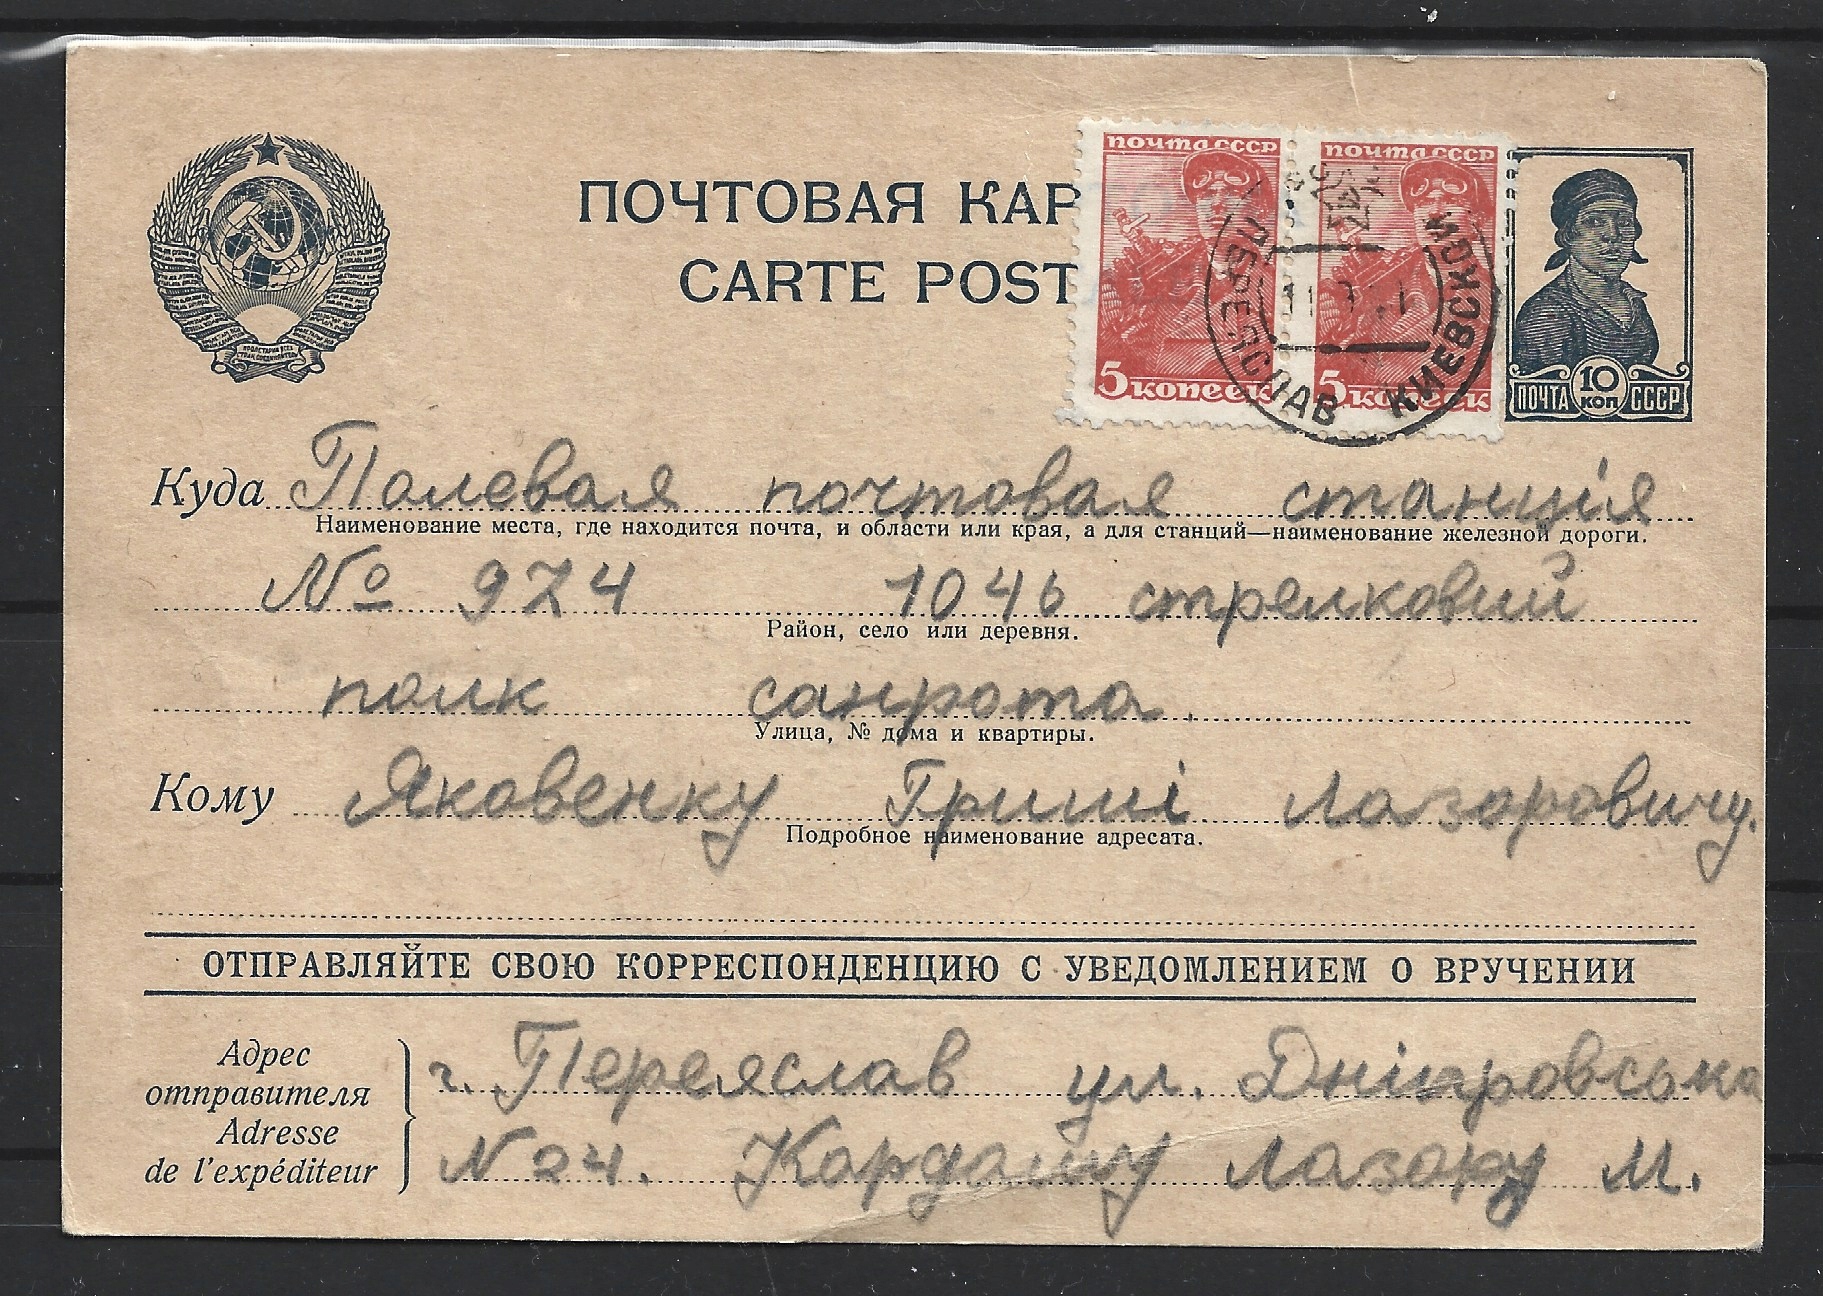 ПРОЛЕТАРИИ ВСЕХ СТРАН, СОЕДИНЯЙТЕСЬ
ПОЧТОВАЯ КАР
CARTE POST
ПОЧТА СССР
5 КОПЕЕК
ПОЧТА СССР
5 КОПЕЕК
ПЕРЕЯСЛАВ КИЕВСКОЙ
11
ПОЧТА 10 КОП СССР
Куда Полевая почтовая станція
Наименование места, где находится почта, и области или края, а для станций—наименование железной дороги.
№ 974 1046 стрелковий
Район, село или деревня.
полк санрота.
Улица, № дома и квартиры.
Кому Яковенку Гриші Лазаровичу.
Подробное наименование адресата.
ОТПРАВЛЯЙТЕ СВОЮ КОРРЕСПОНДЕНЦИЮ С УВЕДОМЛЕНИЕМ О ВРУЧЕНИИ
Адрес отправителя
Adresse de l'expéditeur
г. Переяслав ул. Дніпровська
№ 24. Кардашу Лазару М.